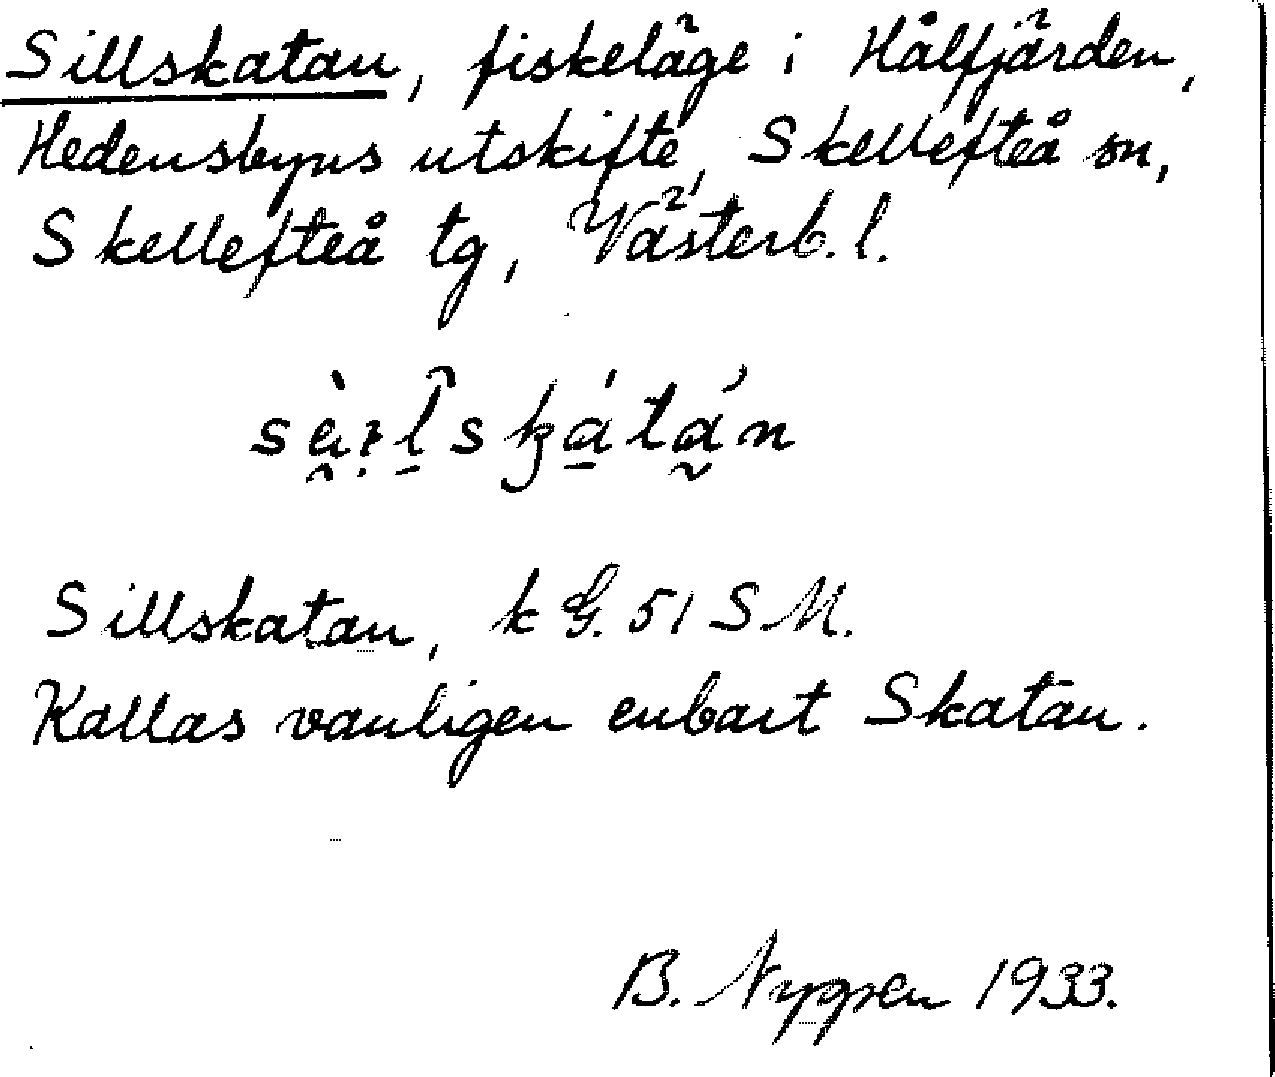 Sillskatan, fiskeläge i Hålfjärden,
Hedensbyns utskifte, Skellefteå sn,
Skellefteå tg, Västerb. l.
Sillskatan, k G. 51 S M.
Kallas vanligen enbart Skatan.
B. Nygren 1933.